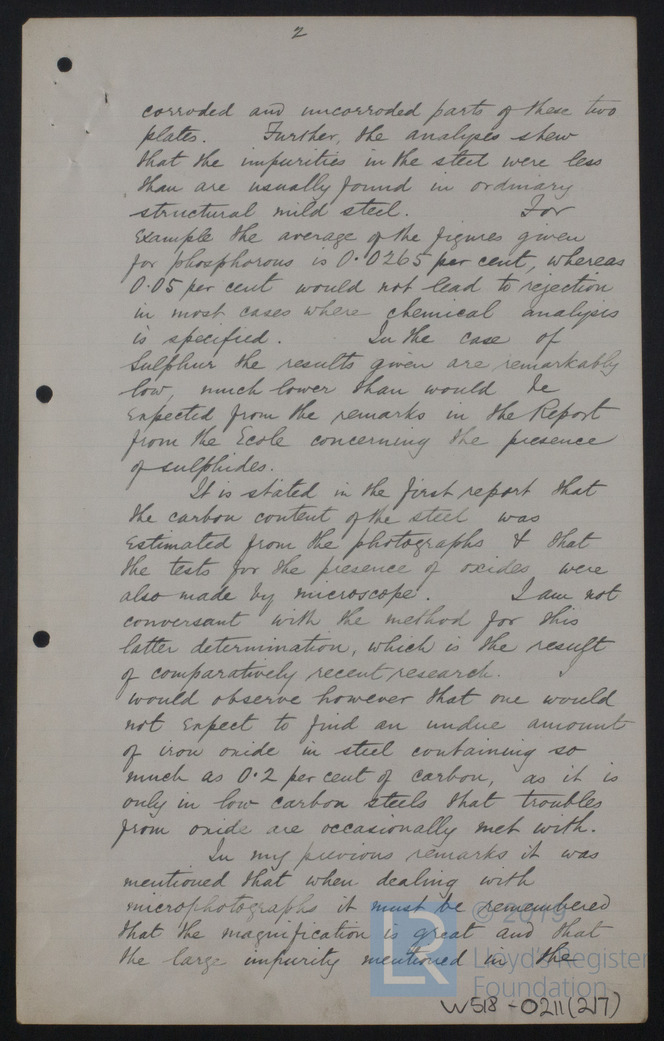 2
corroded and uncorroded parts of these two
plates. Further, the analyses shew
that the impurities in the steel were less
than are usually found in ordinary
structural mild steel. For
Example the average of the figures given
for phosphorous is 0.0265 per cent, whereas
0.05 per cent would not lead to rejection
in most cases where chemical analysis
is specified. In the case of
Sulphur the results given are remarkably
low, much lower than would be
Expected from the remarks in the Report
from the Ecole concerning the presence
of sulphides.
It is stated in the first report that
the carbon content of the steel was
Estimated from the photographs & that
the tests for the presence of oxides were
also made by microscope. I am not
conversant with the method for this
latter determination, which is the result
of comparatively recent research. I
would observe however that one would
not Expect to find an undue amount
of iron oxide in steel containing so
much as 0.2 per cent of carbon, as it is
only in low carbon steels that troubles
from oxide are occasionally met with.
In my previous remarks it was
mentioned that when dealing with
microphotographs it must be remembered
that the magnification is great and that
the large impurity mentioned in the
© 2019
Lloyd's Register
Foundation
LR
W518-0211(2/7)